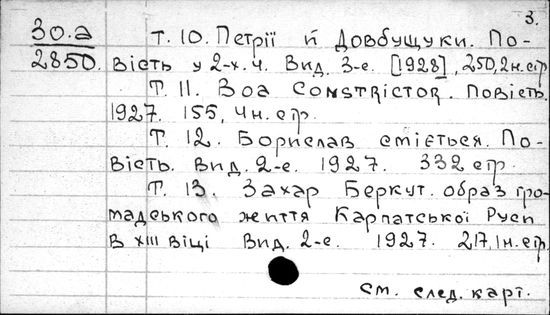 3.
30.а
2850.
Т. 10. Петрії й Довбущуки. По-
вість у 2-х. ч. Вид. 3-е. [1928], 250, 2 н. стр
Т. 11. Boa constrictor. Повість.
1927. 155, 4 н. стр.
Т. 12. Борислав сміється. По-
вість. Вид. 2-е. 1927. 332 стр.
Т. 13. Захар Беркут. образ гро-
мадського життя Карпатської Руси
в XIII віці Вид. 2-е. 1927. 217, 1 н. стр.
см. след. карт.